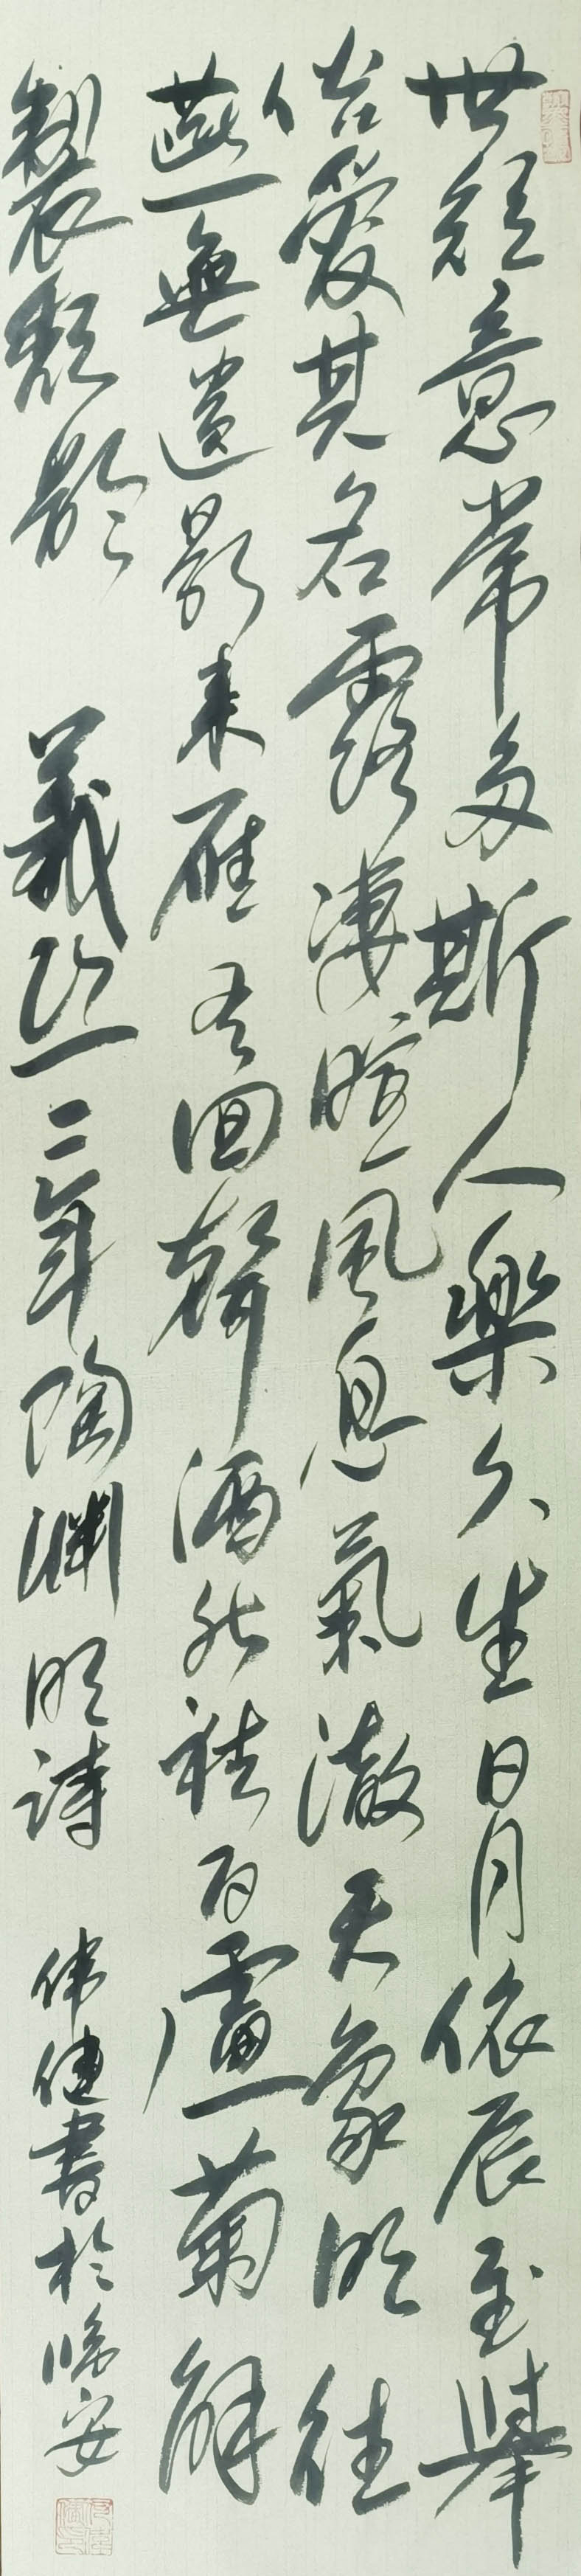 世短意常多斯人樂久生日月依辰至舉
俗愛其名露淒暄風息氣澈天象明往
燕無遺影來雁有回聲酒能祛百慮菊解
製頹齡 義熙二年陶淵明詩 偉健書於安